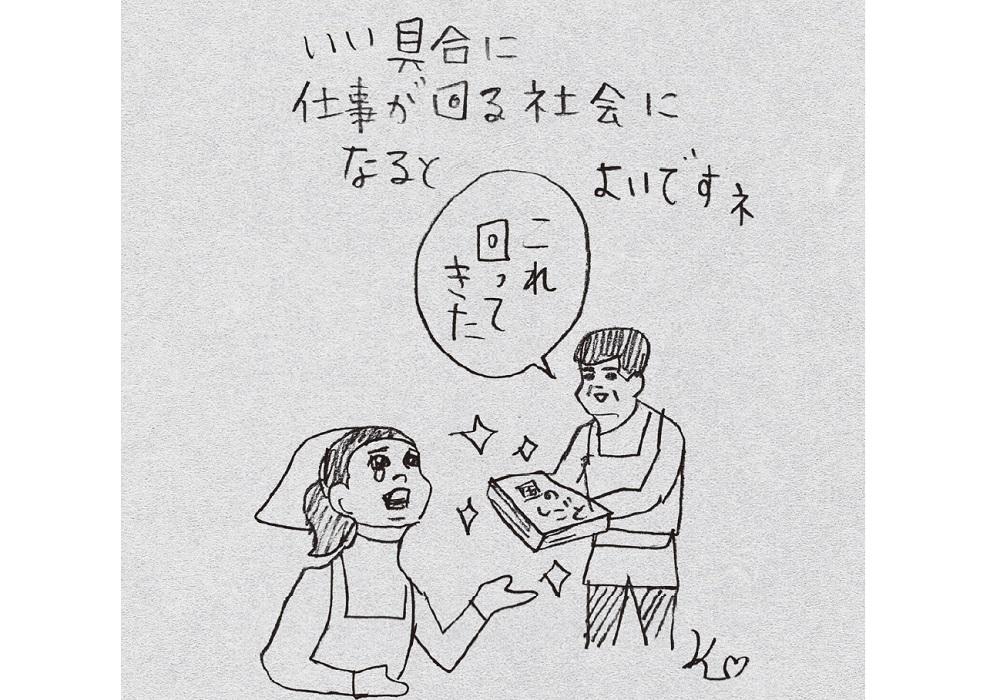 いい具合に
仕事が回る社会に
なると
よいですネ
これ
回って
きた
のしごと
K